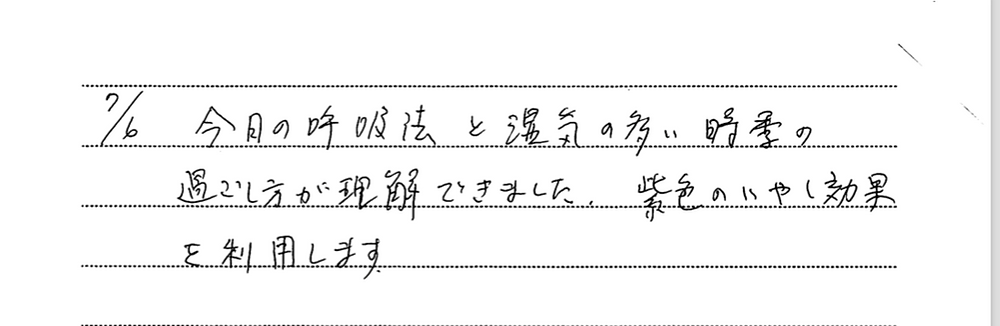 7/6 今月の呼吸法と湿気の多い時季の
過ごし方が理解できました。紫色のいやし効果
を利用します